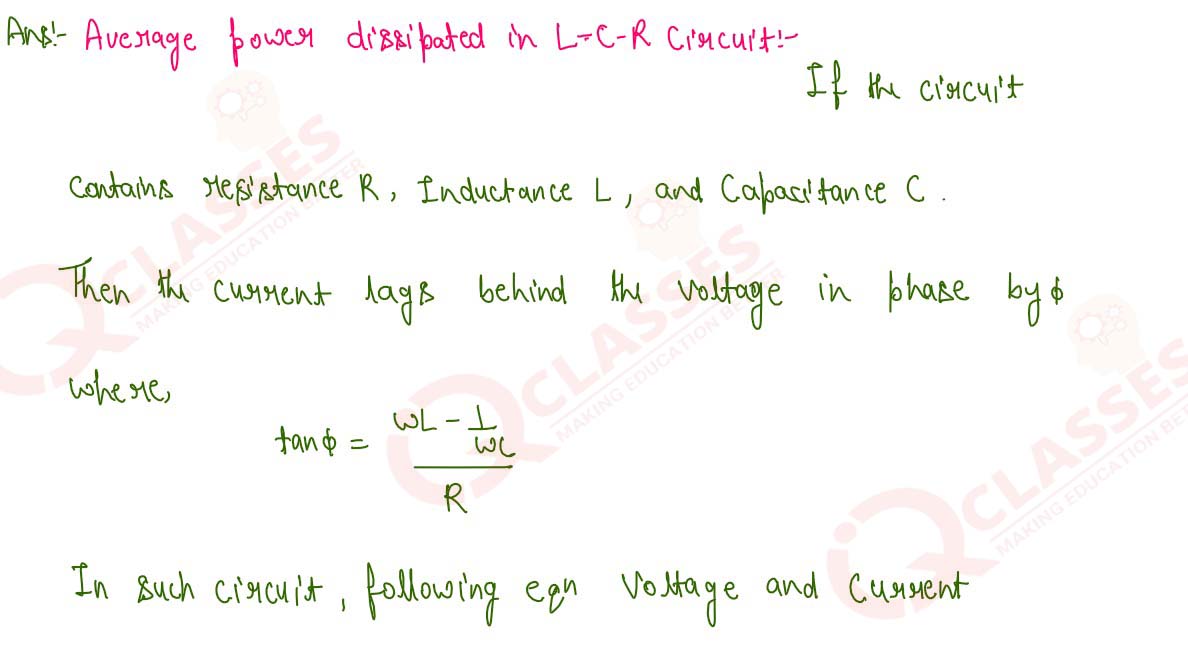 Ans:- Average power dissipated in L-C-R Circuit:-
If the circuit
Contains resistance R, Inductance L, and Capacitance C.
Then the current lags behind the voltage in phase by ϕ
where,
tanϕ = (ωL - 1/ωC) / R
In such circuit, following eqn Voltage and Current
iQ CLASSES
MAKING EDUCATION BETTER
iQ CLASSES
MAKING EDUCATION BETTER
iQ CLASSES
MAKING EDUCATION BETTER